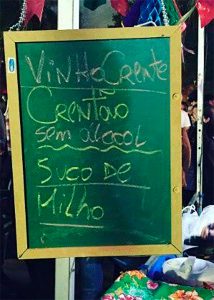 Vinho Crente
Crentão
sem alcool
Suco de
Milho